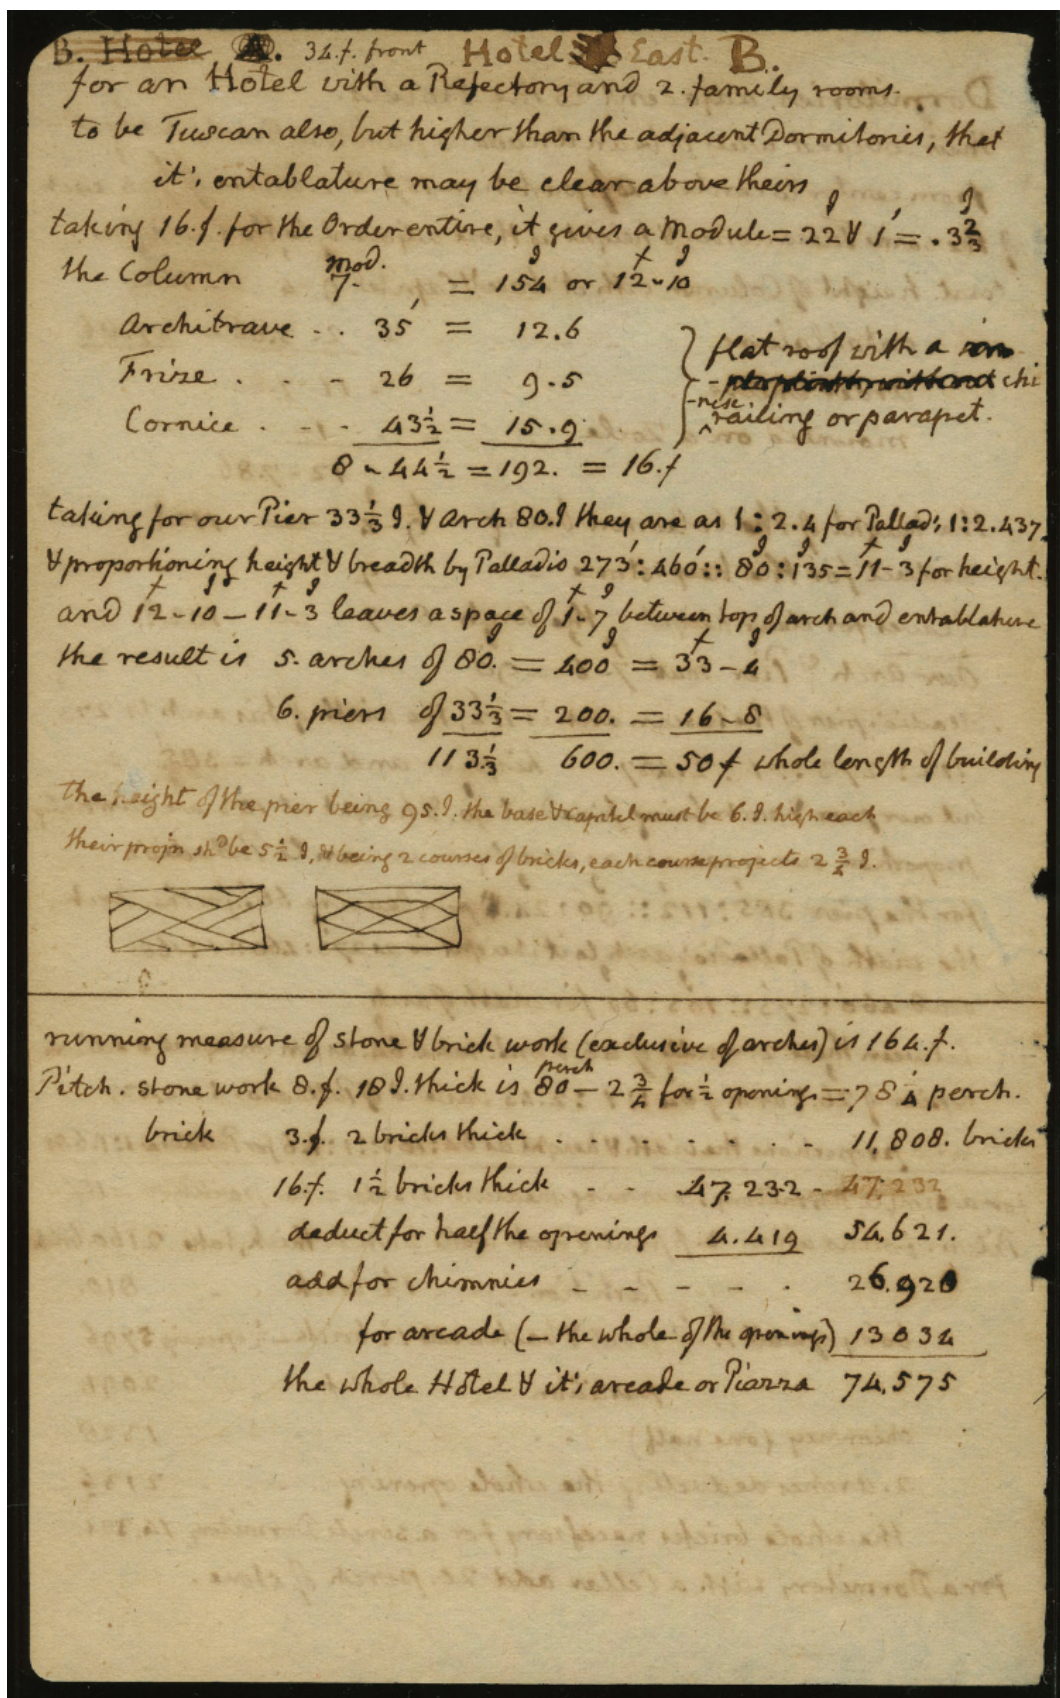 B. Hotel A. 34.f. front Hotel East. B.
for an Hotel with a Refectory and 2. family rooms.
to be Tuscan also, but higher than the adjacent Dormitories, that
it's entablature may be clear above theirs
taking 16.f. for the Order entire, it gives a Module = 22 I & 1' = .3⅔ I
the Column 7. mod. = 154 I or 12 f - 10 I
Architrave . . 35' = 12.6
Frize . . - 26 = 9.5
Cornice . - - 43½ = 15.9
8 - 44½ = 192. = 16.f
flat roof with a
chi
-nese railing or parapet.
taking for our Pier 33⅓ I. & Arch 80.I they are as 1 : 2.4 for Pallad's 1:2.437
& proportioning height & breadth by Palladio 273' : 460' :: 80 I : 135 I = 11 f - 3 I for height.
and 12 f - 10 I — 11 f - 3 I leaves a space of 1 f - 7 I between top of arch and entablature
the result is 5. arches of 80. I = 400 I = 33 f - 4 I
6. piers of 33⅓ = 200. = 16 - 8
113⅓ 600. = 50 f whole length of building
the height of the pier being 95.I. the base & capitel must be 6.I. high each
their projn shd be 5½ I, & being 2 courses of bricks, each course projects 2¾ I.
running measure of stone & brick work (exclusive of arches) is 164.f.
Pitch. stone work 8.f. 18 I. thick is 80 perch — 2¾ for ½ openings = 78¼ perch.
brick 3.f. 2 bricks thick . . . . . . . - 11,808. bricks
16.f. 1½ bricks thick - - 47,232 - 47,232
deduct for half the openings 4.419 54,621.
add for chimnies - - - - . 26.920
for arcade (— the whole of the openings) 13034
the whole Hotel & it's arcade or Piazza 74,575